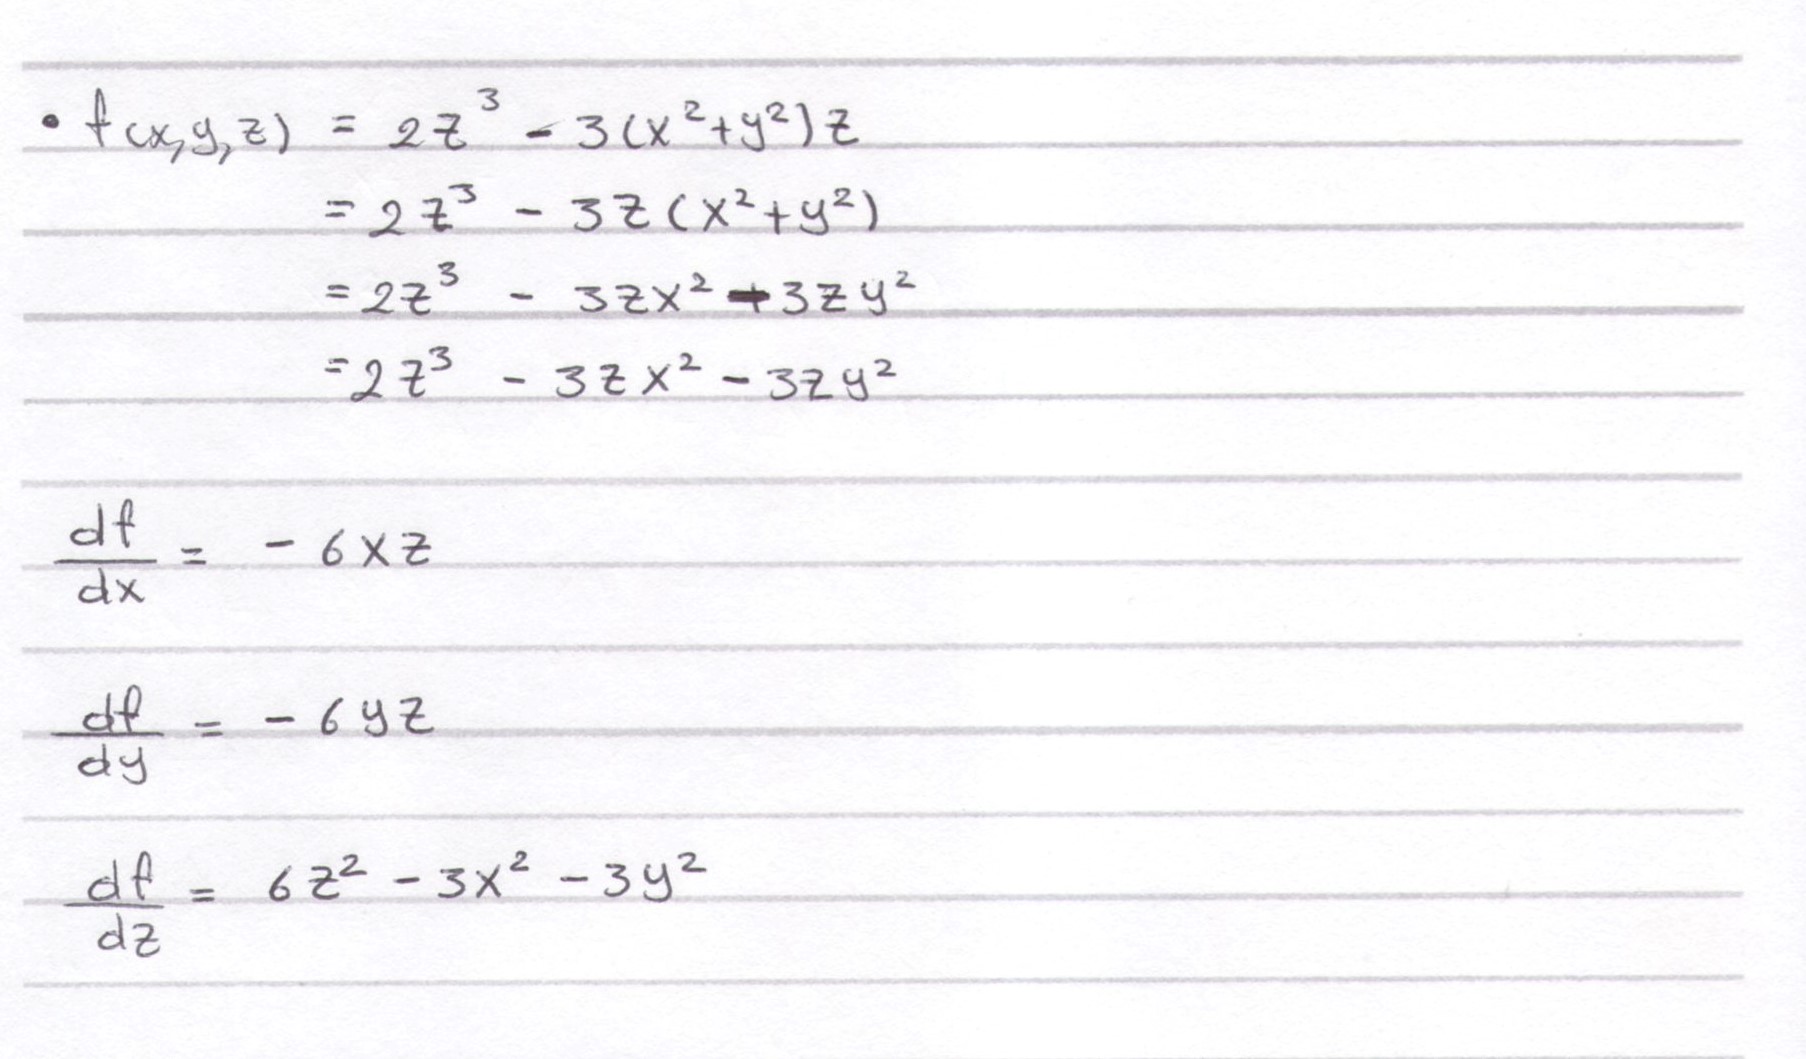 • f(x,y,z) = 2z³ - 3(x²+y²)z
= 2z³ - 3z(x²+y²)
= 2z³ - 3zx² - 3zy²
= 2z³ - 3zx² - 3zy²
df/dx = - 6xz
df/dy = - 6yz
df/dz = 6z² - 3x² - 3y²